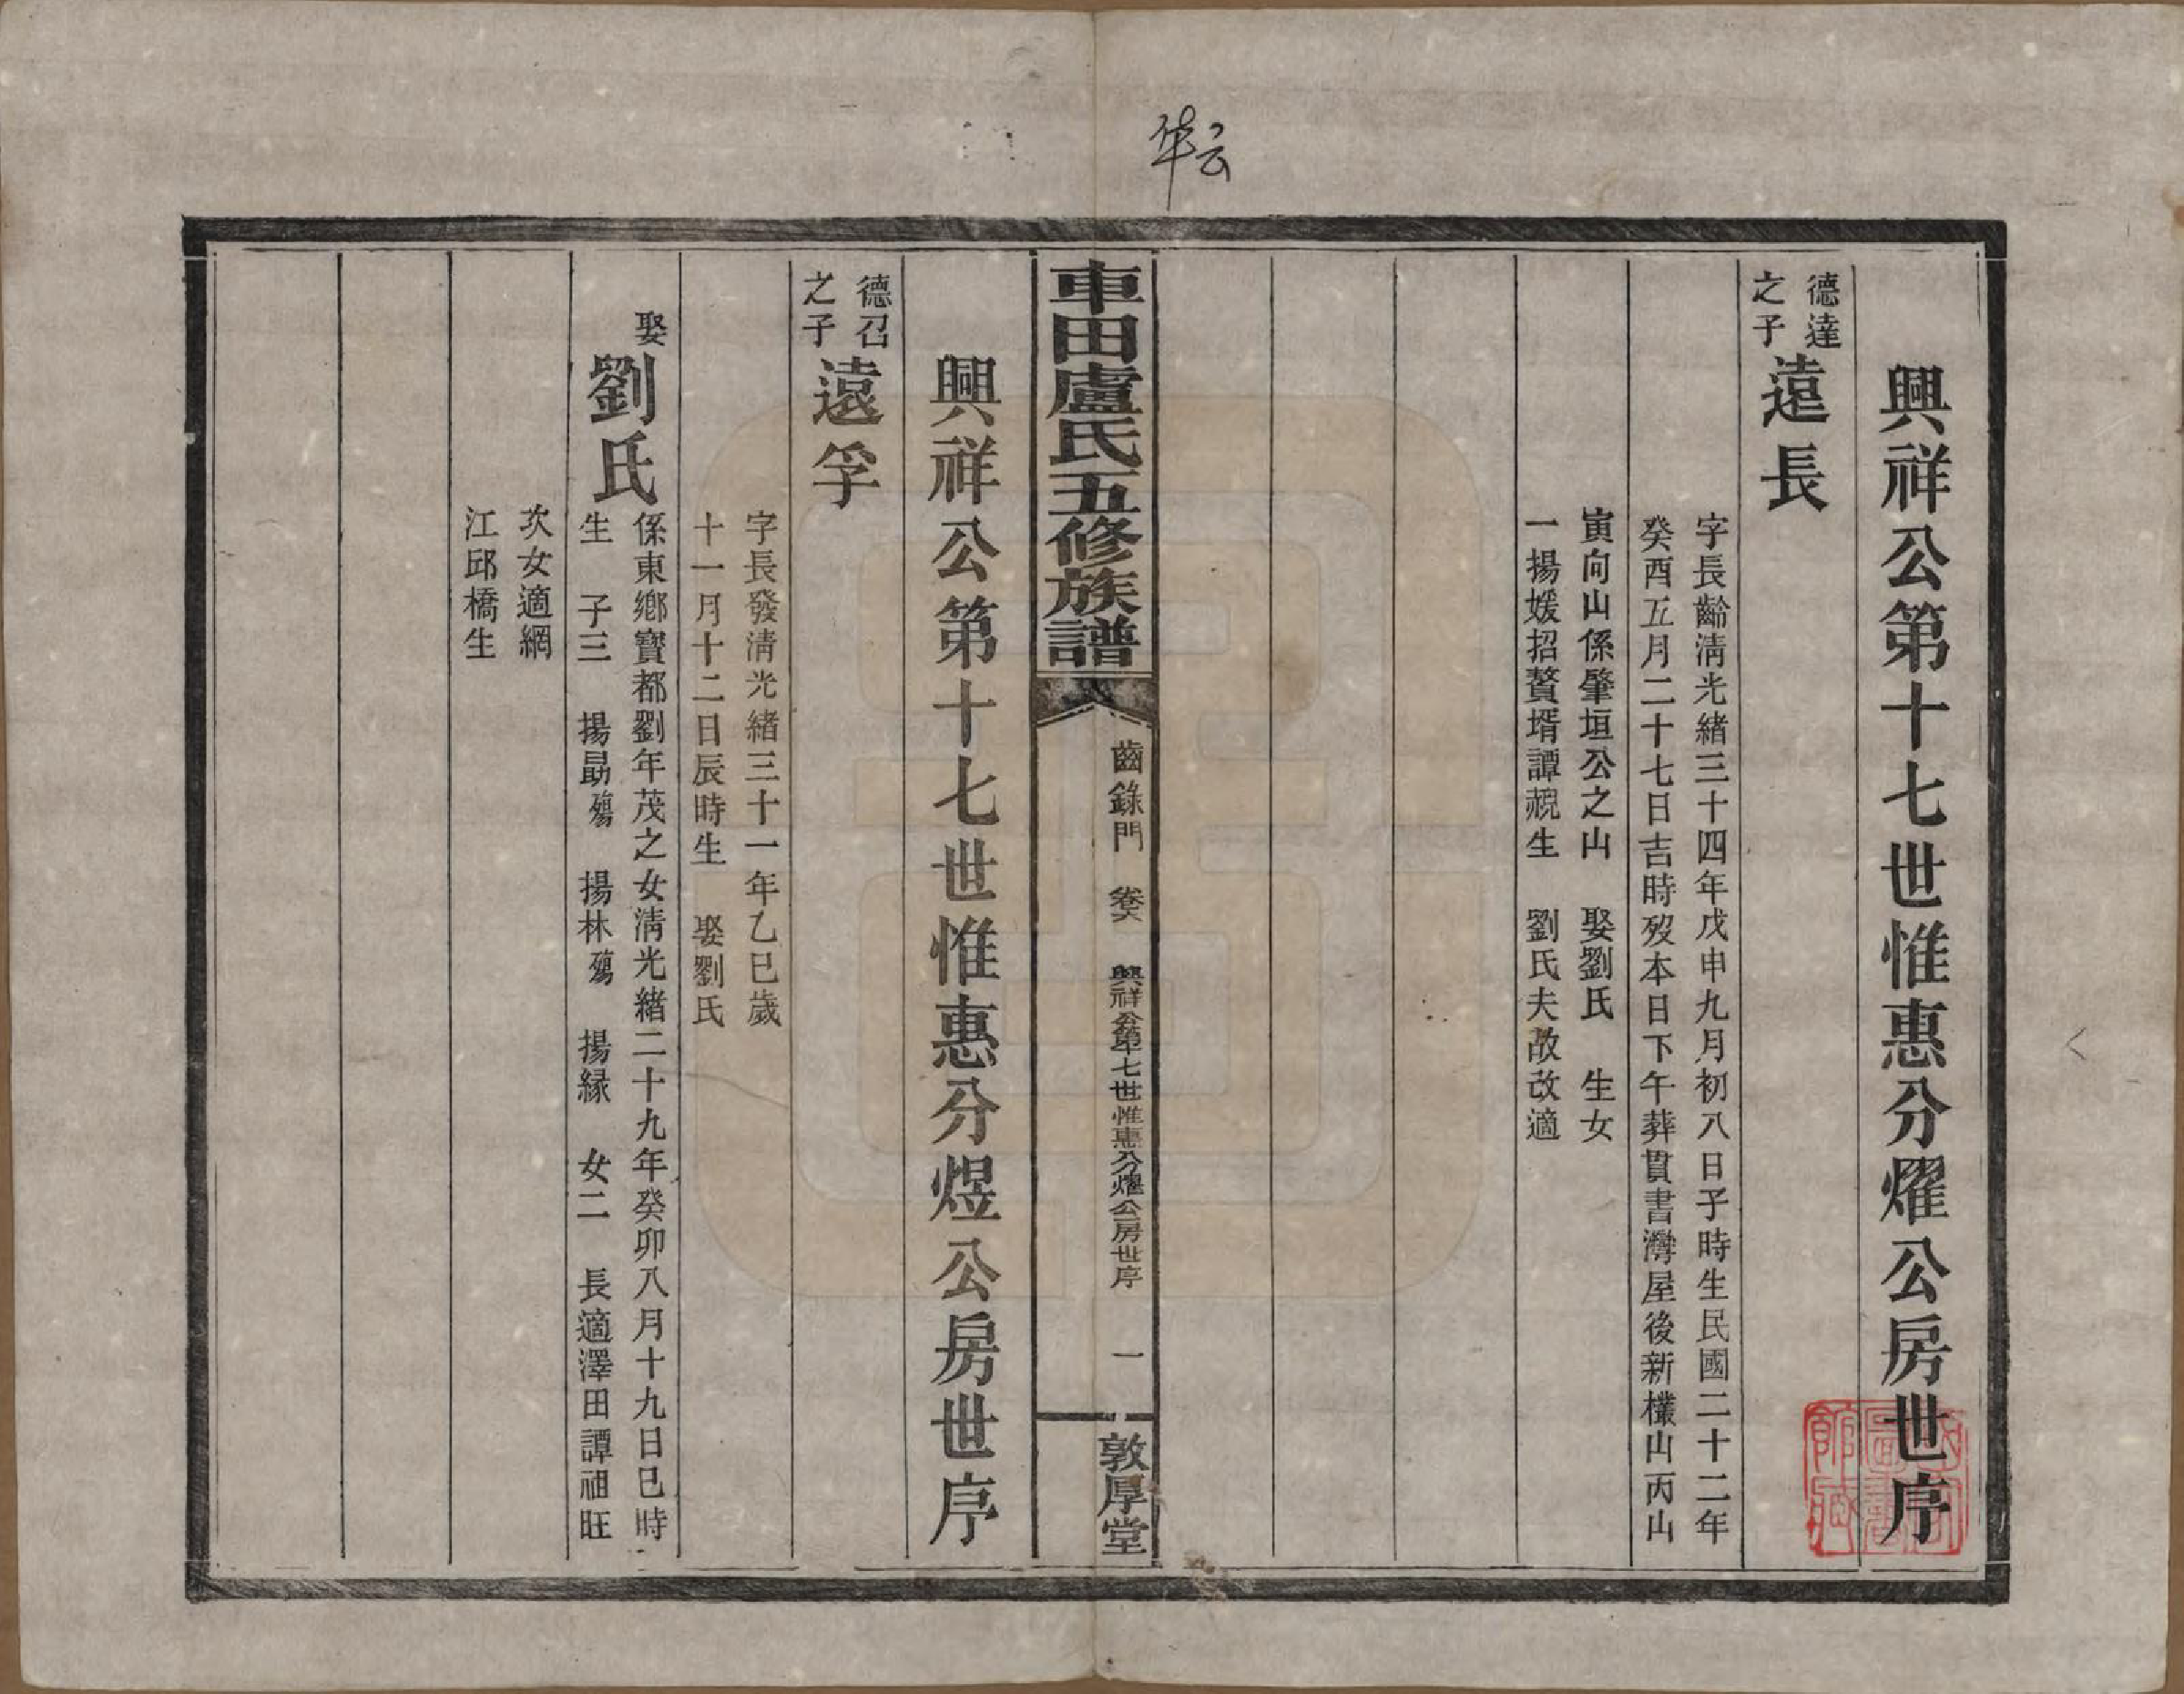 興祥公第十七世惟惠分燿公房世序
德達
之子
遠長
字長齡清光緒三十四年戊申九月初八日子時生民國二十二年
癸酉五月二十七日吉時歿本日下午葬貫書灣屋後新欉山丙山
寅向山係肇垣公之山 娶劉氏 生女
一揚媛招贅壻譚覤生 劉氏夫故改適
車田盧氏五修族譜
齒錄門 卷六 興祥公第十七世惟惠分燿公房世序 一
敦厚堂
興祥公第十七世惟惠分煜公房世序
德召
之子
遠孚
字長發清光緒三十一年乙巳歲
十一月十二日辰時生 娶劉氏
娶
劉氏
係東鄉寶都劉年茂之女清光緒二十九年癸卯八月十九日巳時
生 子三 揚勗殤 揚林殤 揚緣 女二 長適澤田譚祖旺
次女適網
江邱橋生